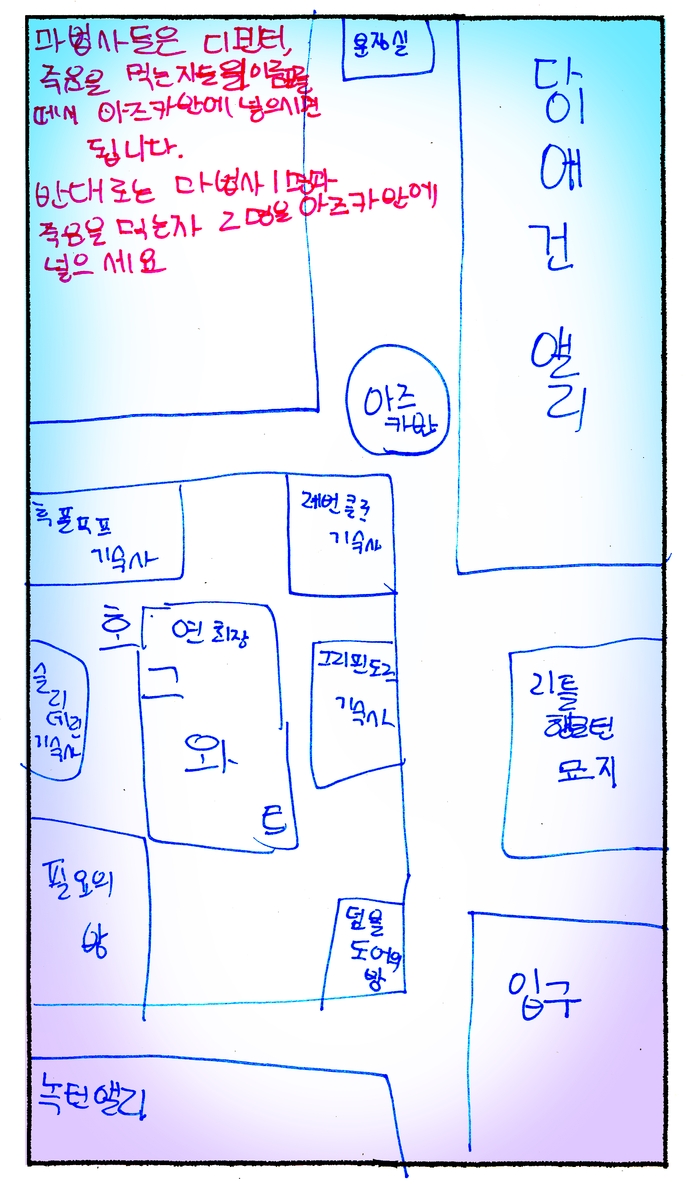 마법사들은 디멘터,
죽음을 먹는자들의 이름표를
떼서 아즈카반에 넣으시면
됩니다.
반대로는 마법사 1명과
죽음을 먹는자 2명을 아즈카반에
넣으세요
운장실
다이애건 앨리
아즈
카반
후플푸프
기숙사
레번클루
기숙사
호그와트
연회장
슬리
데린
기숙사
그리핀도르
기숙사
리틀
행글턴
묘지
필요의
방
덤블
도어의
방
입구
녹턴앨리